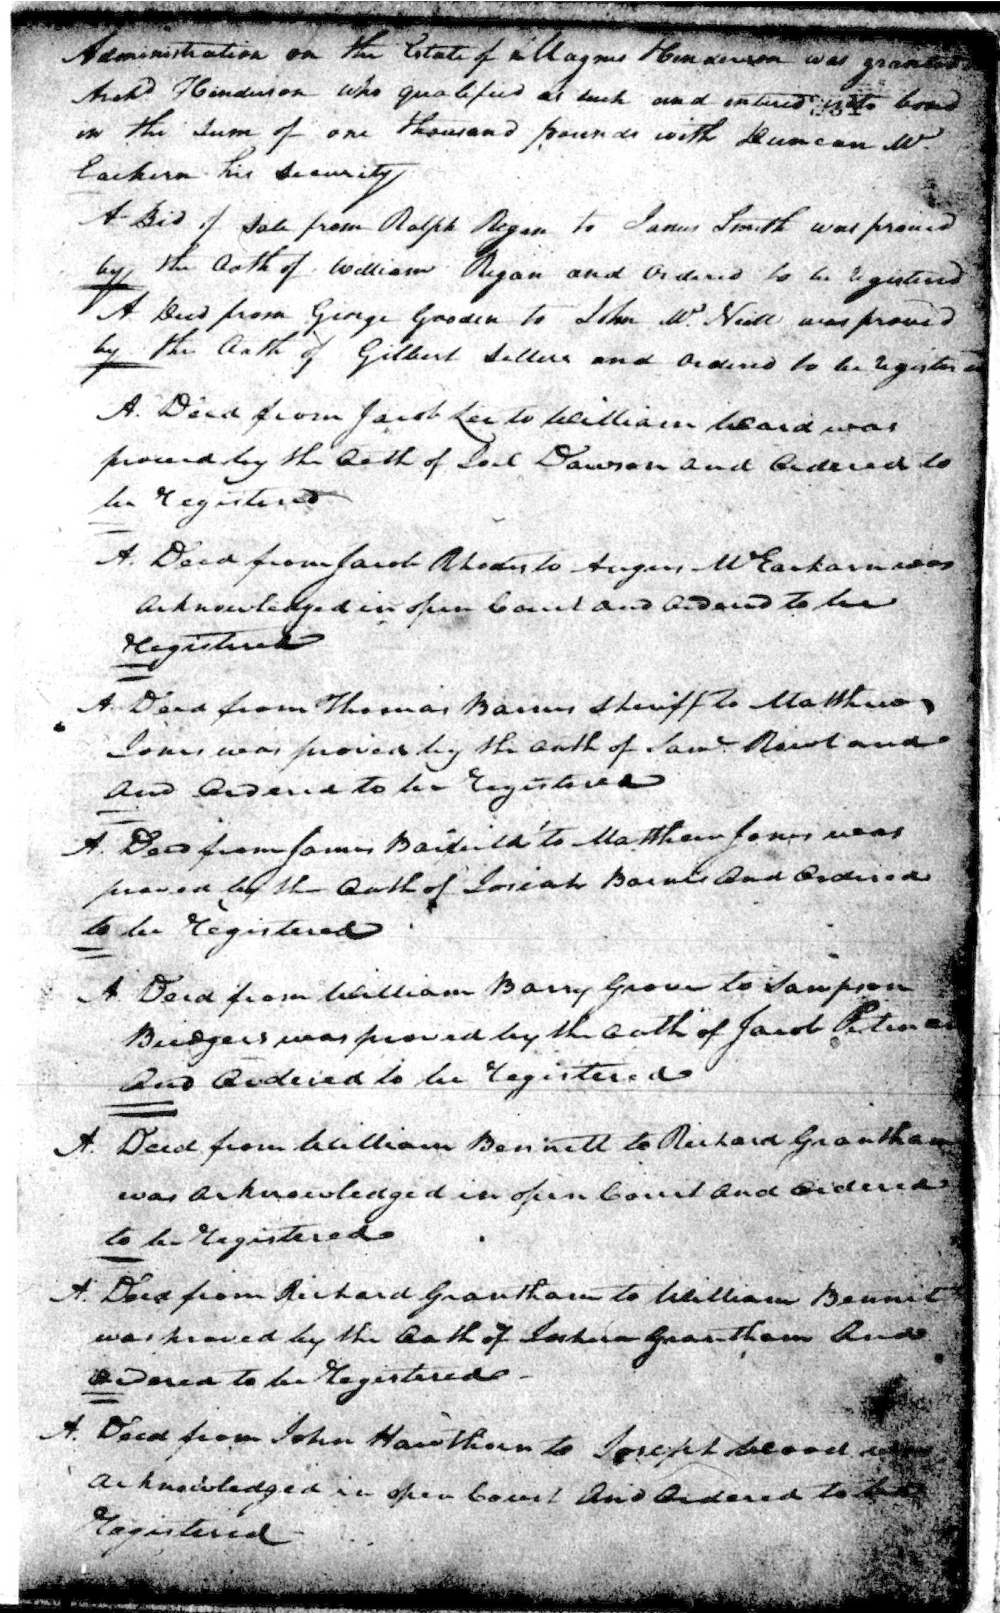 Administration on the Estate of Magnus Henderson was granted
Archd Henderson who qualified as such and entered into bond
in the Sum of one thousand pounds with Duncan Mc
Eachern his Security
A Bill of Sale from Ralph Regan to James Smith was proved
by the Oath of William Regan and Ordered to be registered
A Deed from George Gooden to John McNeill was proved
by the Oath of Gilbert Sellers and Ordered to be registered
A. Deed from Jacob Lee to William Ward was
proved by the Oath of Joel Dawson and Ordered to
be Registered
A. Deed from Jacob Rhodes to Angus McEacharn was
acknowledged in open Court and Ordered to be
Registered
A. Deed from Thomas Barnes Sheriff to Matthew
Jones was proved by the Oath of Saml. Rowland
And Ordered to be Registered
A. Deed from James Barfield to Matthew Jones was
proved by the Oath of Josiah Barnes And Ordered
to be Registered
A Deed from William Barry Grove to Sampson
Bridgers was proved by the Oath of Jacob
And Ordered to be Registered
A. Deed from William Bennett to Richard Grantham
was acknowledged in open Court and Ordered
to be Registered
A. Deed from Richard Grantham to William Bennett
was proved by the Oath of Joshua Grantham And
Ordered to be Registered
A. Deed from John Hawthorn to Joseph Wood was
acknowledged in open Court And Ordered to be
Registered